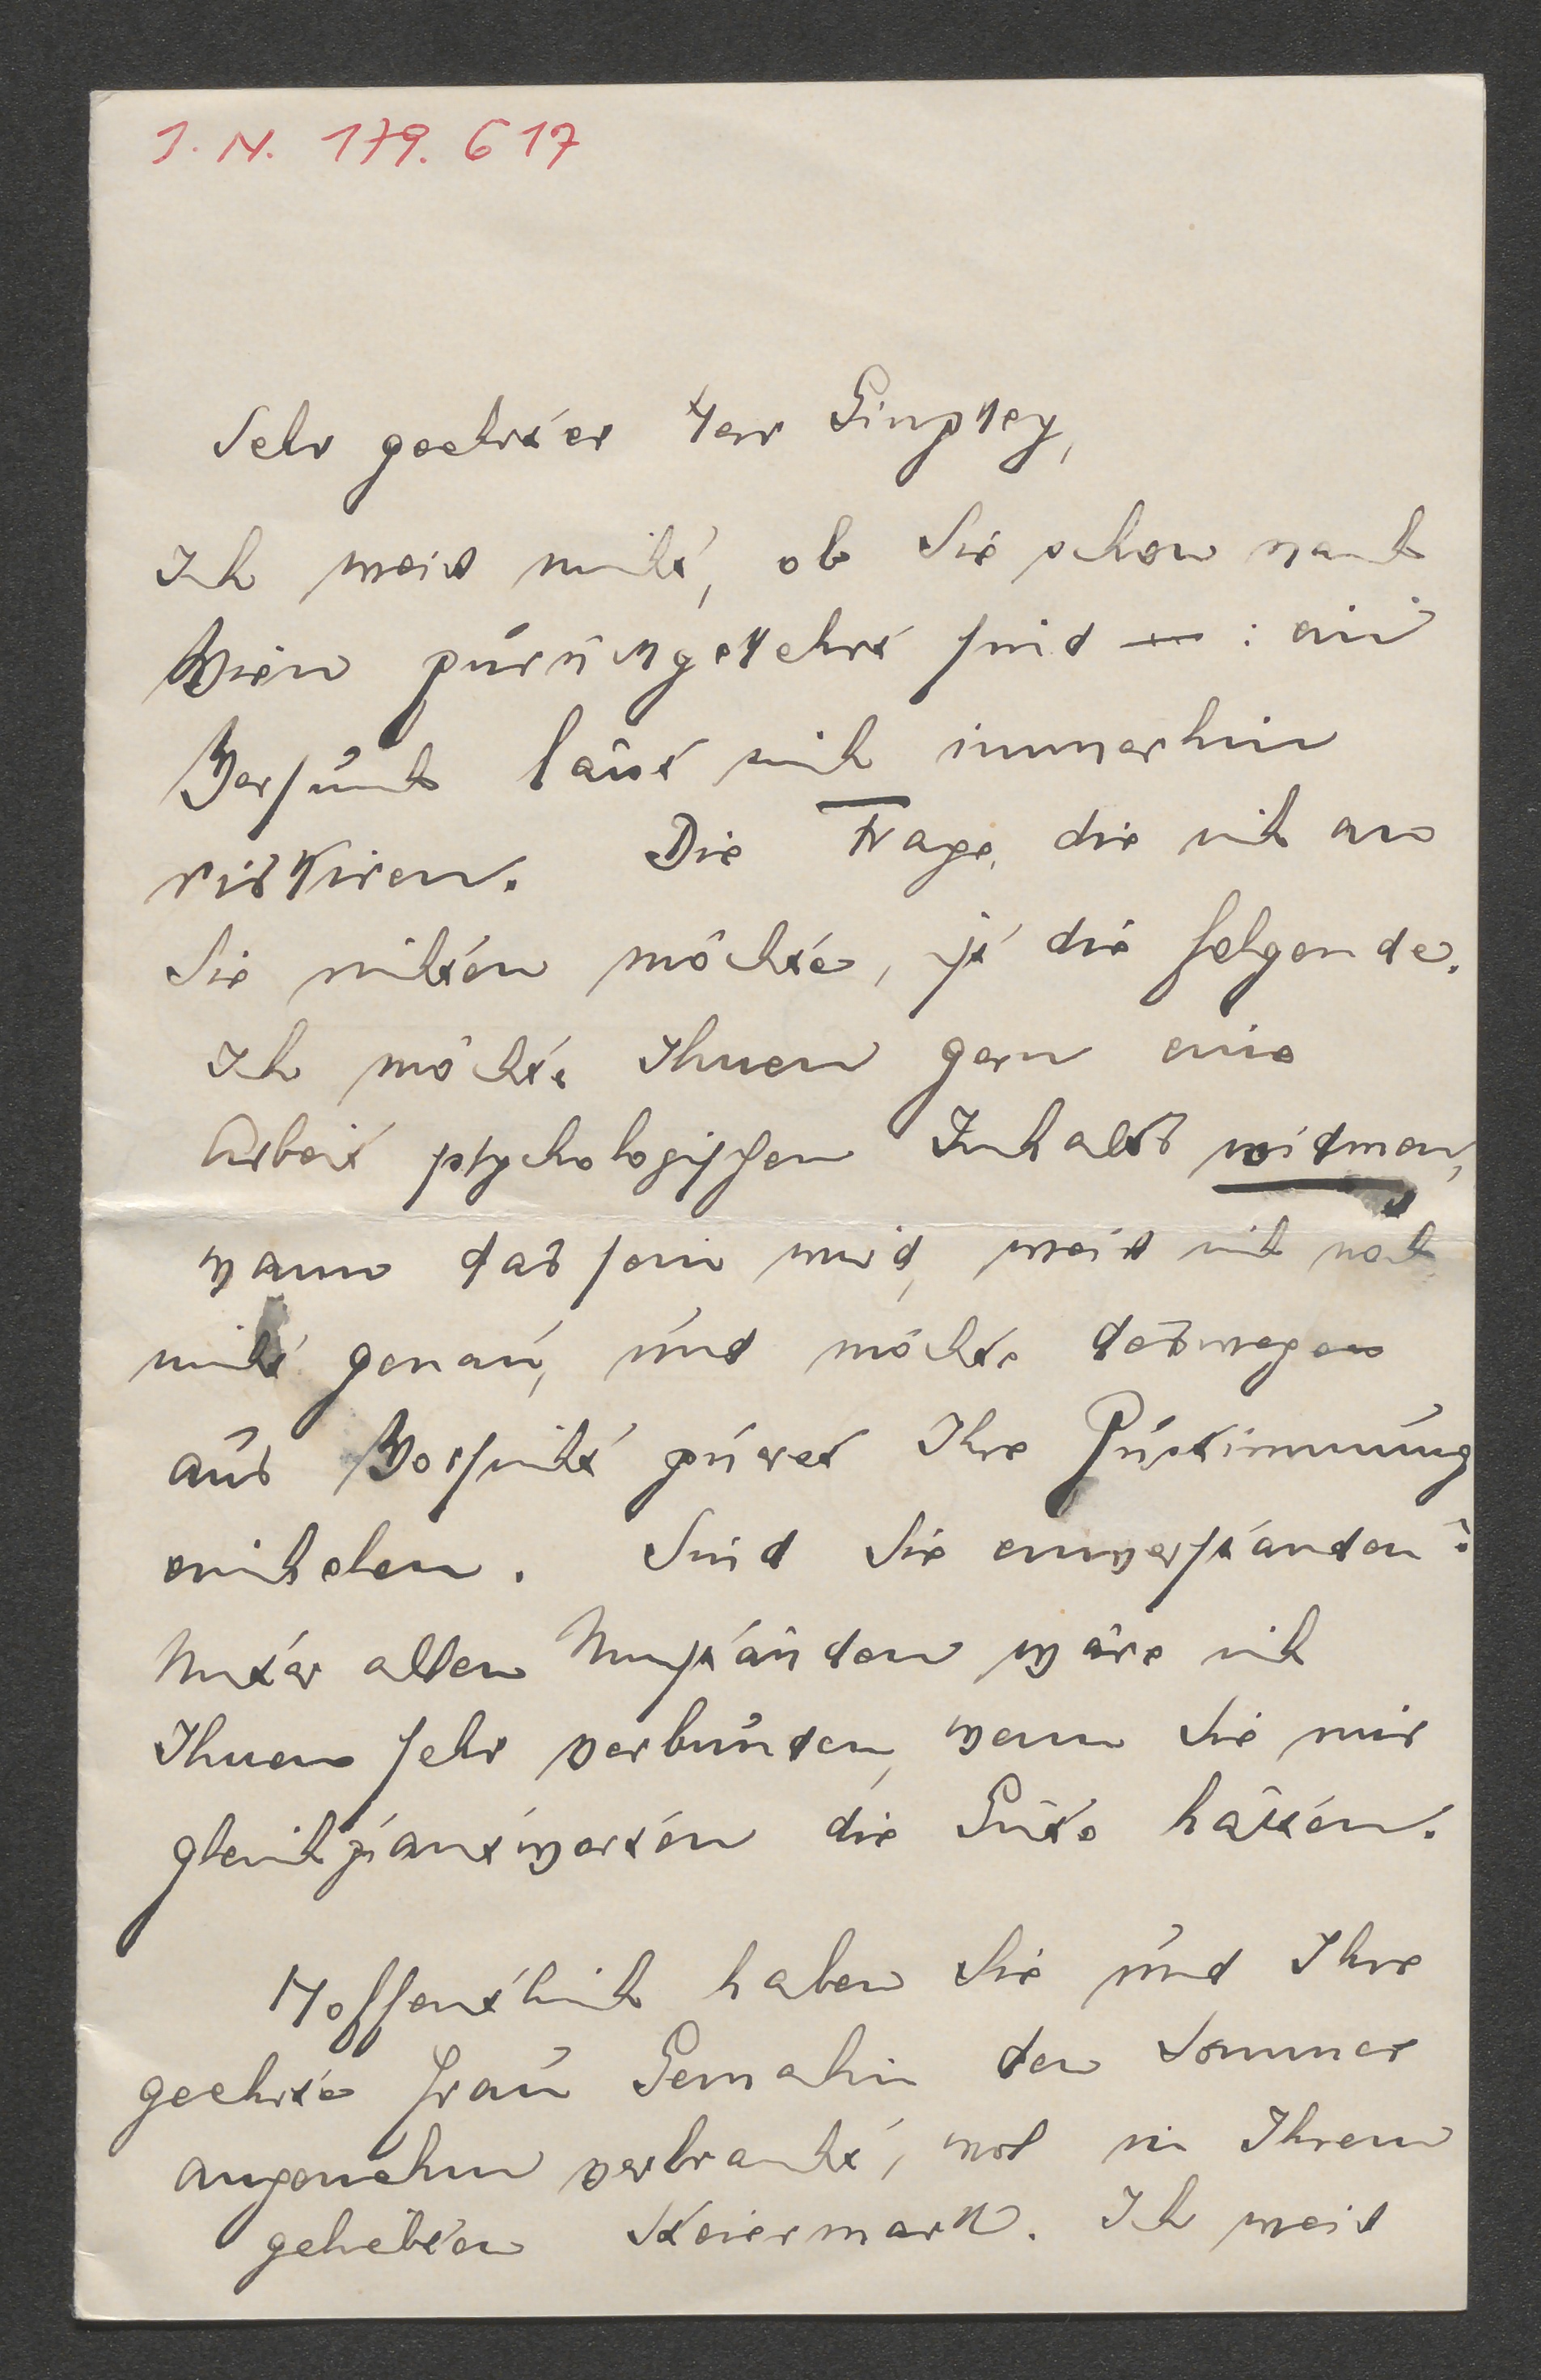 I. N. 179.617
Sehr geehrter Herr Ginzkey,
Ich weiss nicht, ob Sie schon nach
Wien zurückgekehrt sind — : ein
Versuch lässt sich immerhin
riskiren. Die Frage, die ich an
Sie richten möchte, ist die folgende.
Ich möchte Ihnen gern eine
Arbeit psychologischen Inhalts widmen,
wann das sein wird, weiss ich noch
nicht genau, und möchte deswegen
aus Vorsicht zuerst Ihre Zustimmung
einholen. Sind Sie einverstanden?
Unter allen Umständen wäre ich
Ihnen sehr verbunden, wenn Sie mir
gleich zu antworten die Güte hätten.
Hoffentlich haben Sie und Ihre
geehrte Frau Gemahin den Sommer
angenehm verbracht, wol in Ihrem
geliebten Steiermark. Ich weiss